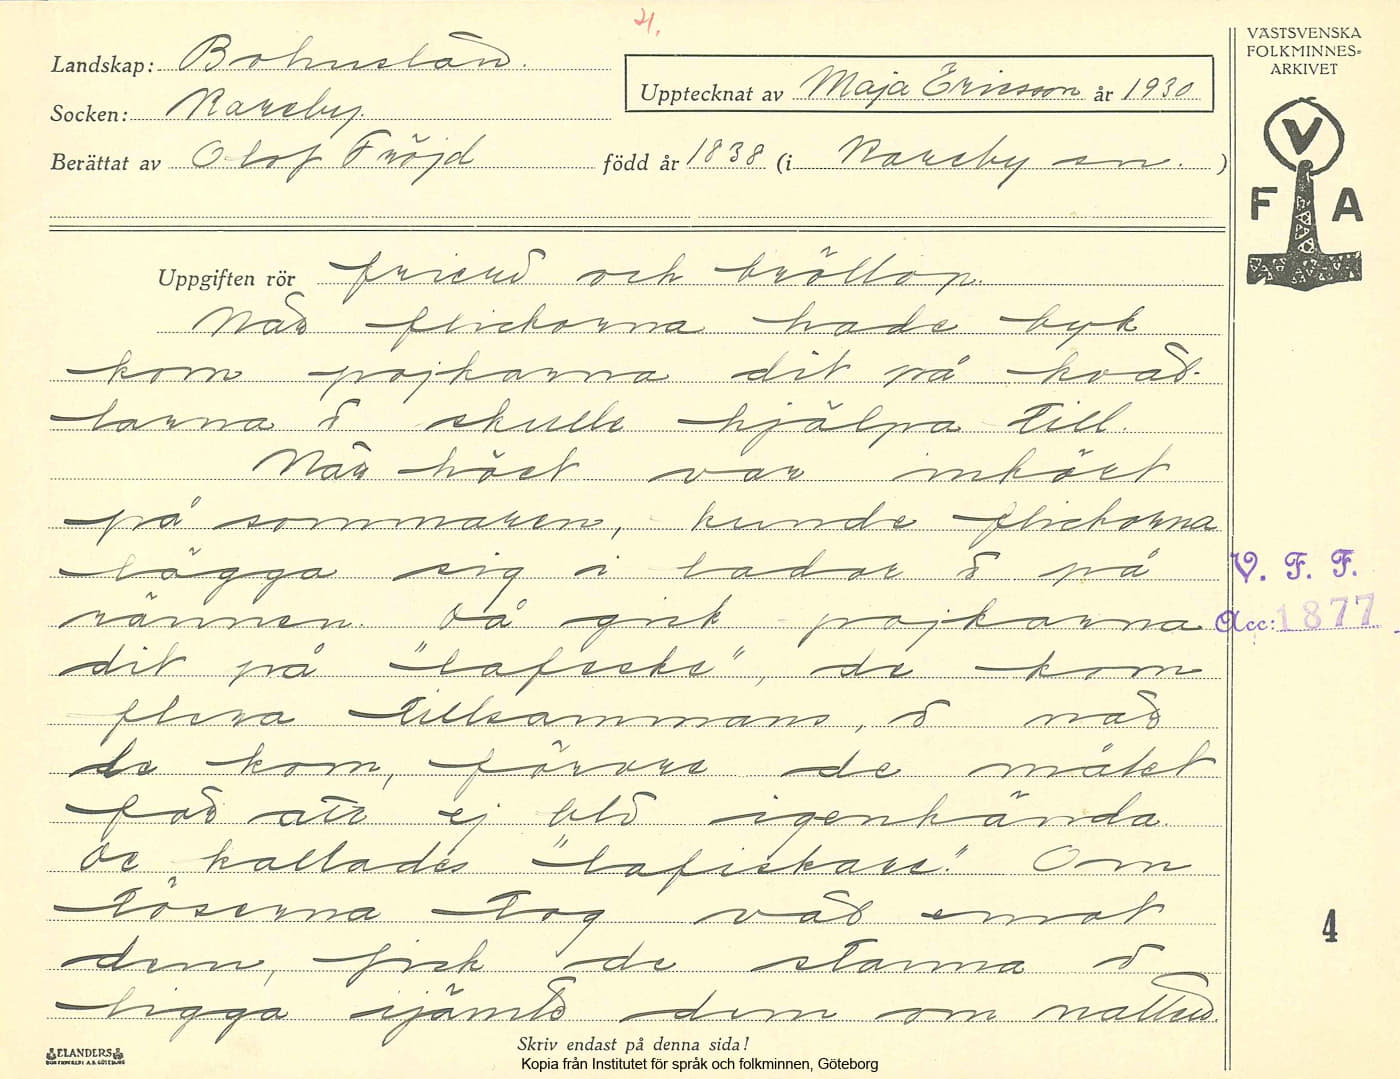 21.
Landskap: Bohuslän.
Upptecknat av Maja Ericsson år 1930
Socken: Kareby.
Berättat av Olof Fröjd född år 1838 (i Kareby sn. )
VÄSTSVENSKA
FOLKMINNES=
ARKIVET
V
F A
Uppgiften rör frieri och bröllop.
När flickorna hade byk
kom pojkarna dit på kväl-
larna o skulle hjälpa till.
När höet var inkört
på sommaren, kunde flickorna
lägga sig i lador o på
rännen. Då gick pojkarna
dit på "lafseke", de kom
flera tillsammans, o när
de kom, förvred de målet
för att ej bli igenkända.
De kallades "lafiskare". Om
töserna tog väl emot
dem, fick de stanna o
ligga ijämte dem om natten.
V. F. F.
Acc: 1877
4
ELANDERS
BOKTRYCKERI A.B. GÖTEBORG
Skriv endast på denna sida!
Kopia från Institutet för språk och folkminnen, Göteborg